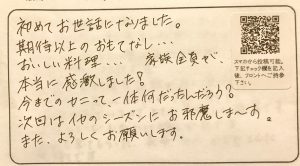 初めてお世話になりました。
期待以上のおもてなし...
おいしい料理... 家族全員が、
本当に感激しました?
今までのカニって、一体何だったんだろう?
次回は他のシーズンにお邪魔しま〜す。
また、よろしくお願いします。
スマホから投稿可能。
下記チェック欄を記入
後、フロントへご持参
下さい。